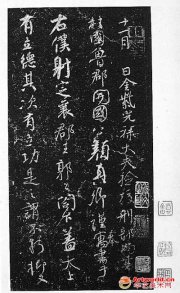 十一月　日金紫光禄大夫检校刑部尚书
柱國魯郡開國公顏真卿謹奉書于
右僕射定襄郡王郭公閤下蓋太上
有立德其次有立功是之謂不朽抑又